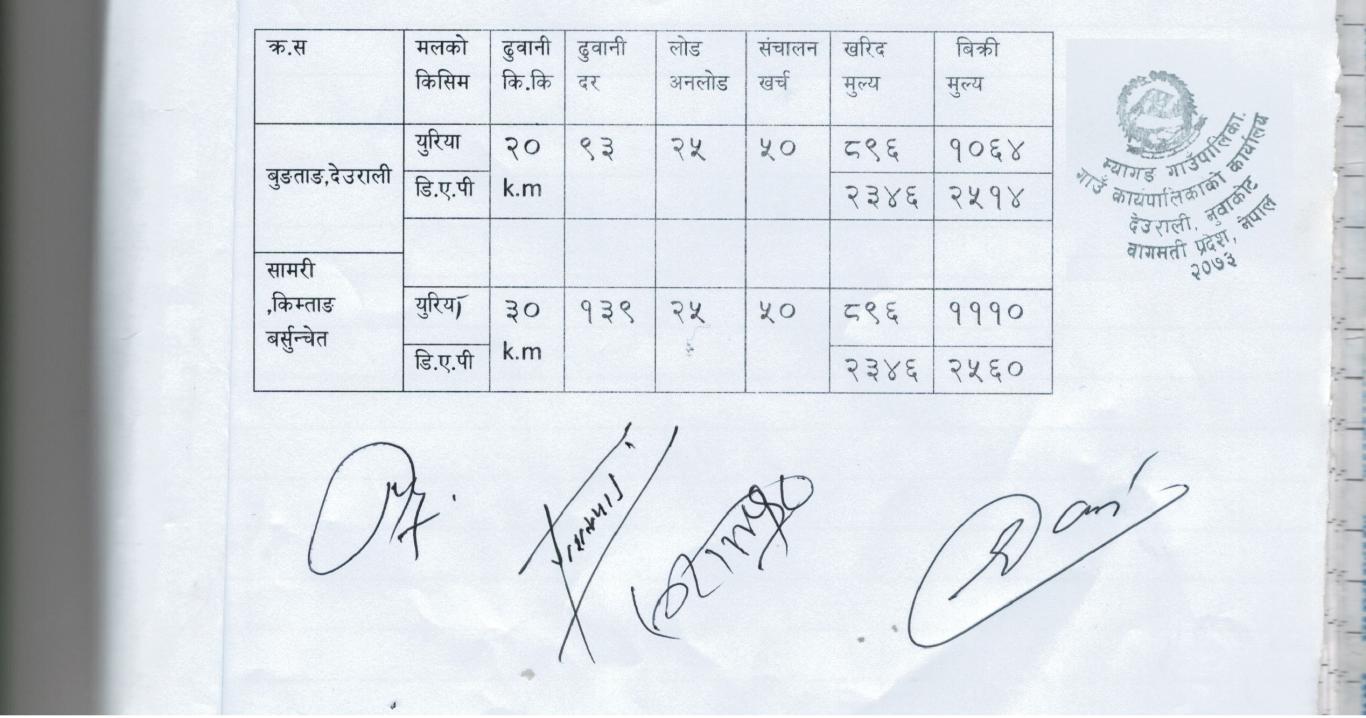 क्र.स मलको किसिम ढुवानी कि.कि ढुवानी दर लोड अनलोड संचालन खर्च खरिद मुल्य बिक्री मुल्य
बुङताङ,देउराली युरिया २० k.m ९३ २५ ५० ८९६ १०६४
डि.ए.पी २३४६ २५१४
सामरी ,किम्ताङ बर्सुन्चेत युरिया ३० k.m १३९ २५ ५० ८९६ १११०
डि.ए.पी २३४६ २५६०
म्यागङ गाउँपालिका.
गाउँ कार्यपालिकाको कार्यालय
देउराली, नुवाकोट
वागमती प्रदेश, नेपाल
२०७३